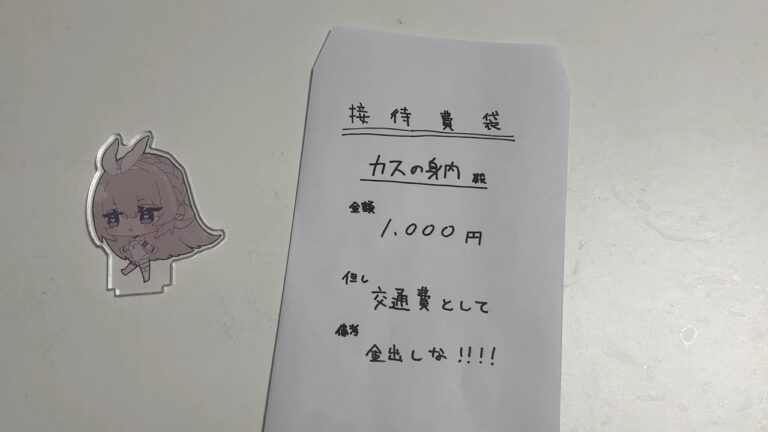 接待費袋
カスの身内 殿
金額
1,000円
但し
交通費として
備考
金出しな!!!!